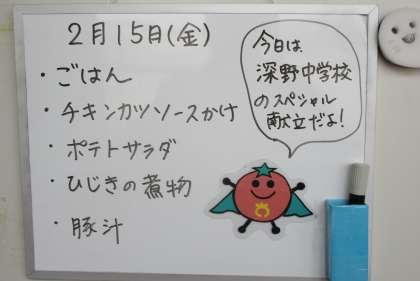 2月15日(金)
・ごはん
・チキンカツソースかけ
・ポテトサラダ
・ひじきの煮物
・豚汁
今日は
深野中学校
のスペシャル
献立だよ!